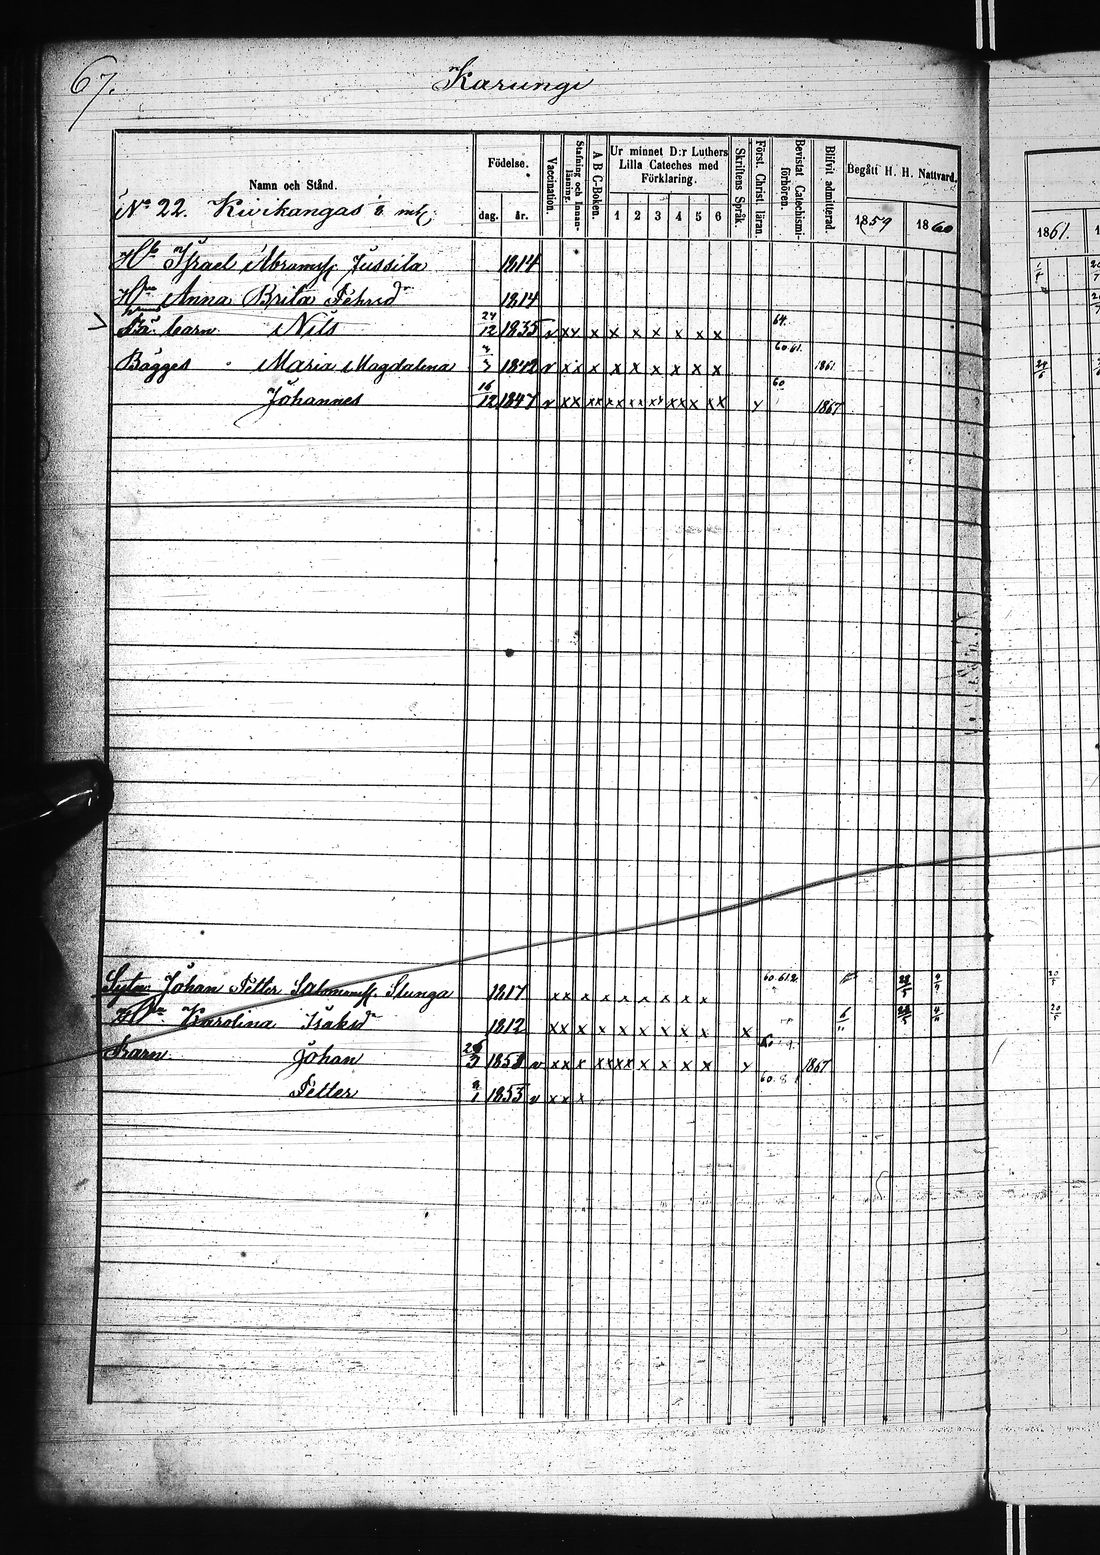 67.
Karungi
Namn och Stånd.
Födelse.
dag. år.
Vaccination.
Stafning och Innanläsning.
A B C-Boken.
Ur minnet D:r Luthers Lilla Cateches med Förklaring.
1 2 3 4 5 6
Skriftens Språk.
Först. Christ. läran.
Bevistat Catechismi-förhören.
Blifvit admitterad.
Begått H. H. Nattvard.
1859 1860
1861.
No 22. Kivikangas
Israel Abramss Jussila 1814
Anna Brita Pehrsd 1814
barn Nils 24/12 1835 v xx x x x x x x x 64.
Bägges Maria Magdalena 1842 v x x x x x x x x x 60.61. 1861.
Johannes 16/12 1847 v xx xx xx xx xx xx xx xx y 60 1867
Johan Petter Salomonss Stunga 1817 xx x x x x x x x
Karolina Isaksdr 1812 xx x x x x x x x x
Barn Johan 1850 v xx x xx xx x x x x y 1867
Petter 1853 v x x x